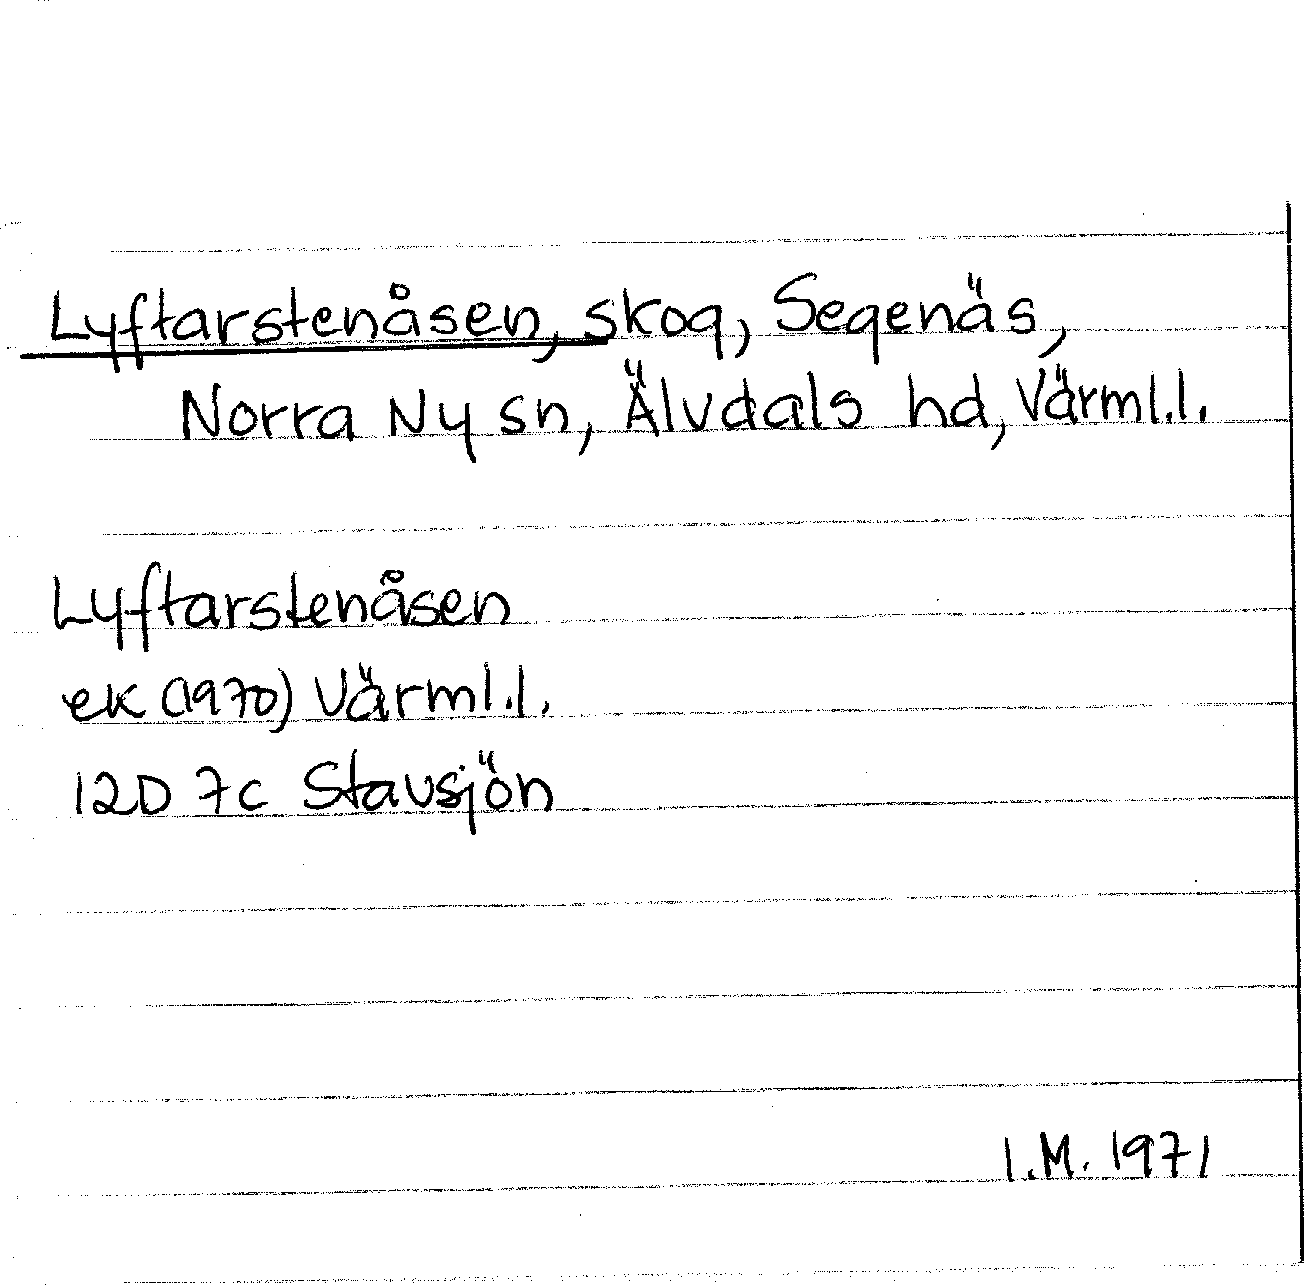 Lyftarstenåsen, skog, Segenäs,
Norra Ny sn, Älvdals hd, Värml.l.
Lyftarstenåsen
ek (1970) Värml.l.
12D 7c Stavsjön
I.M. 1971